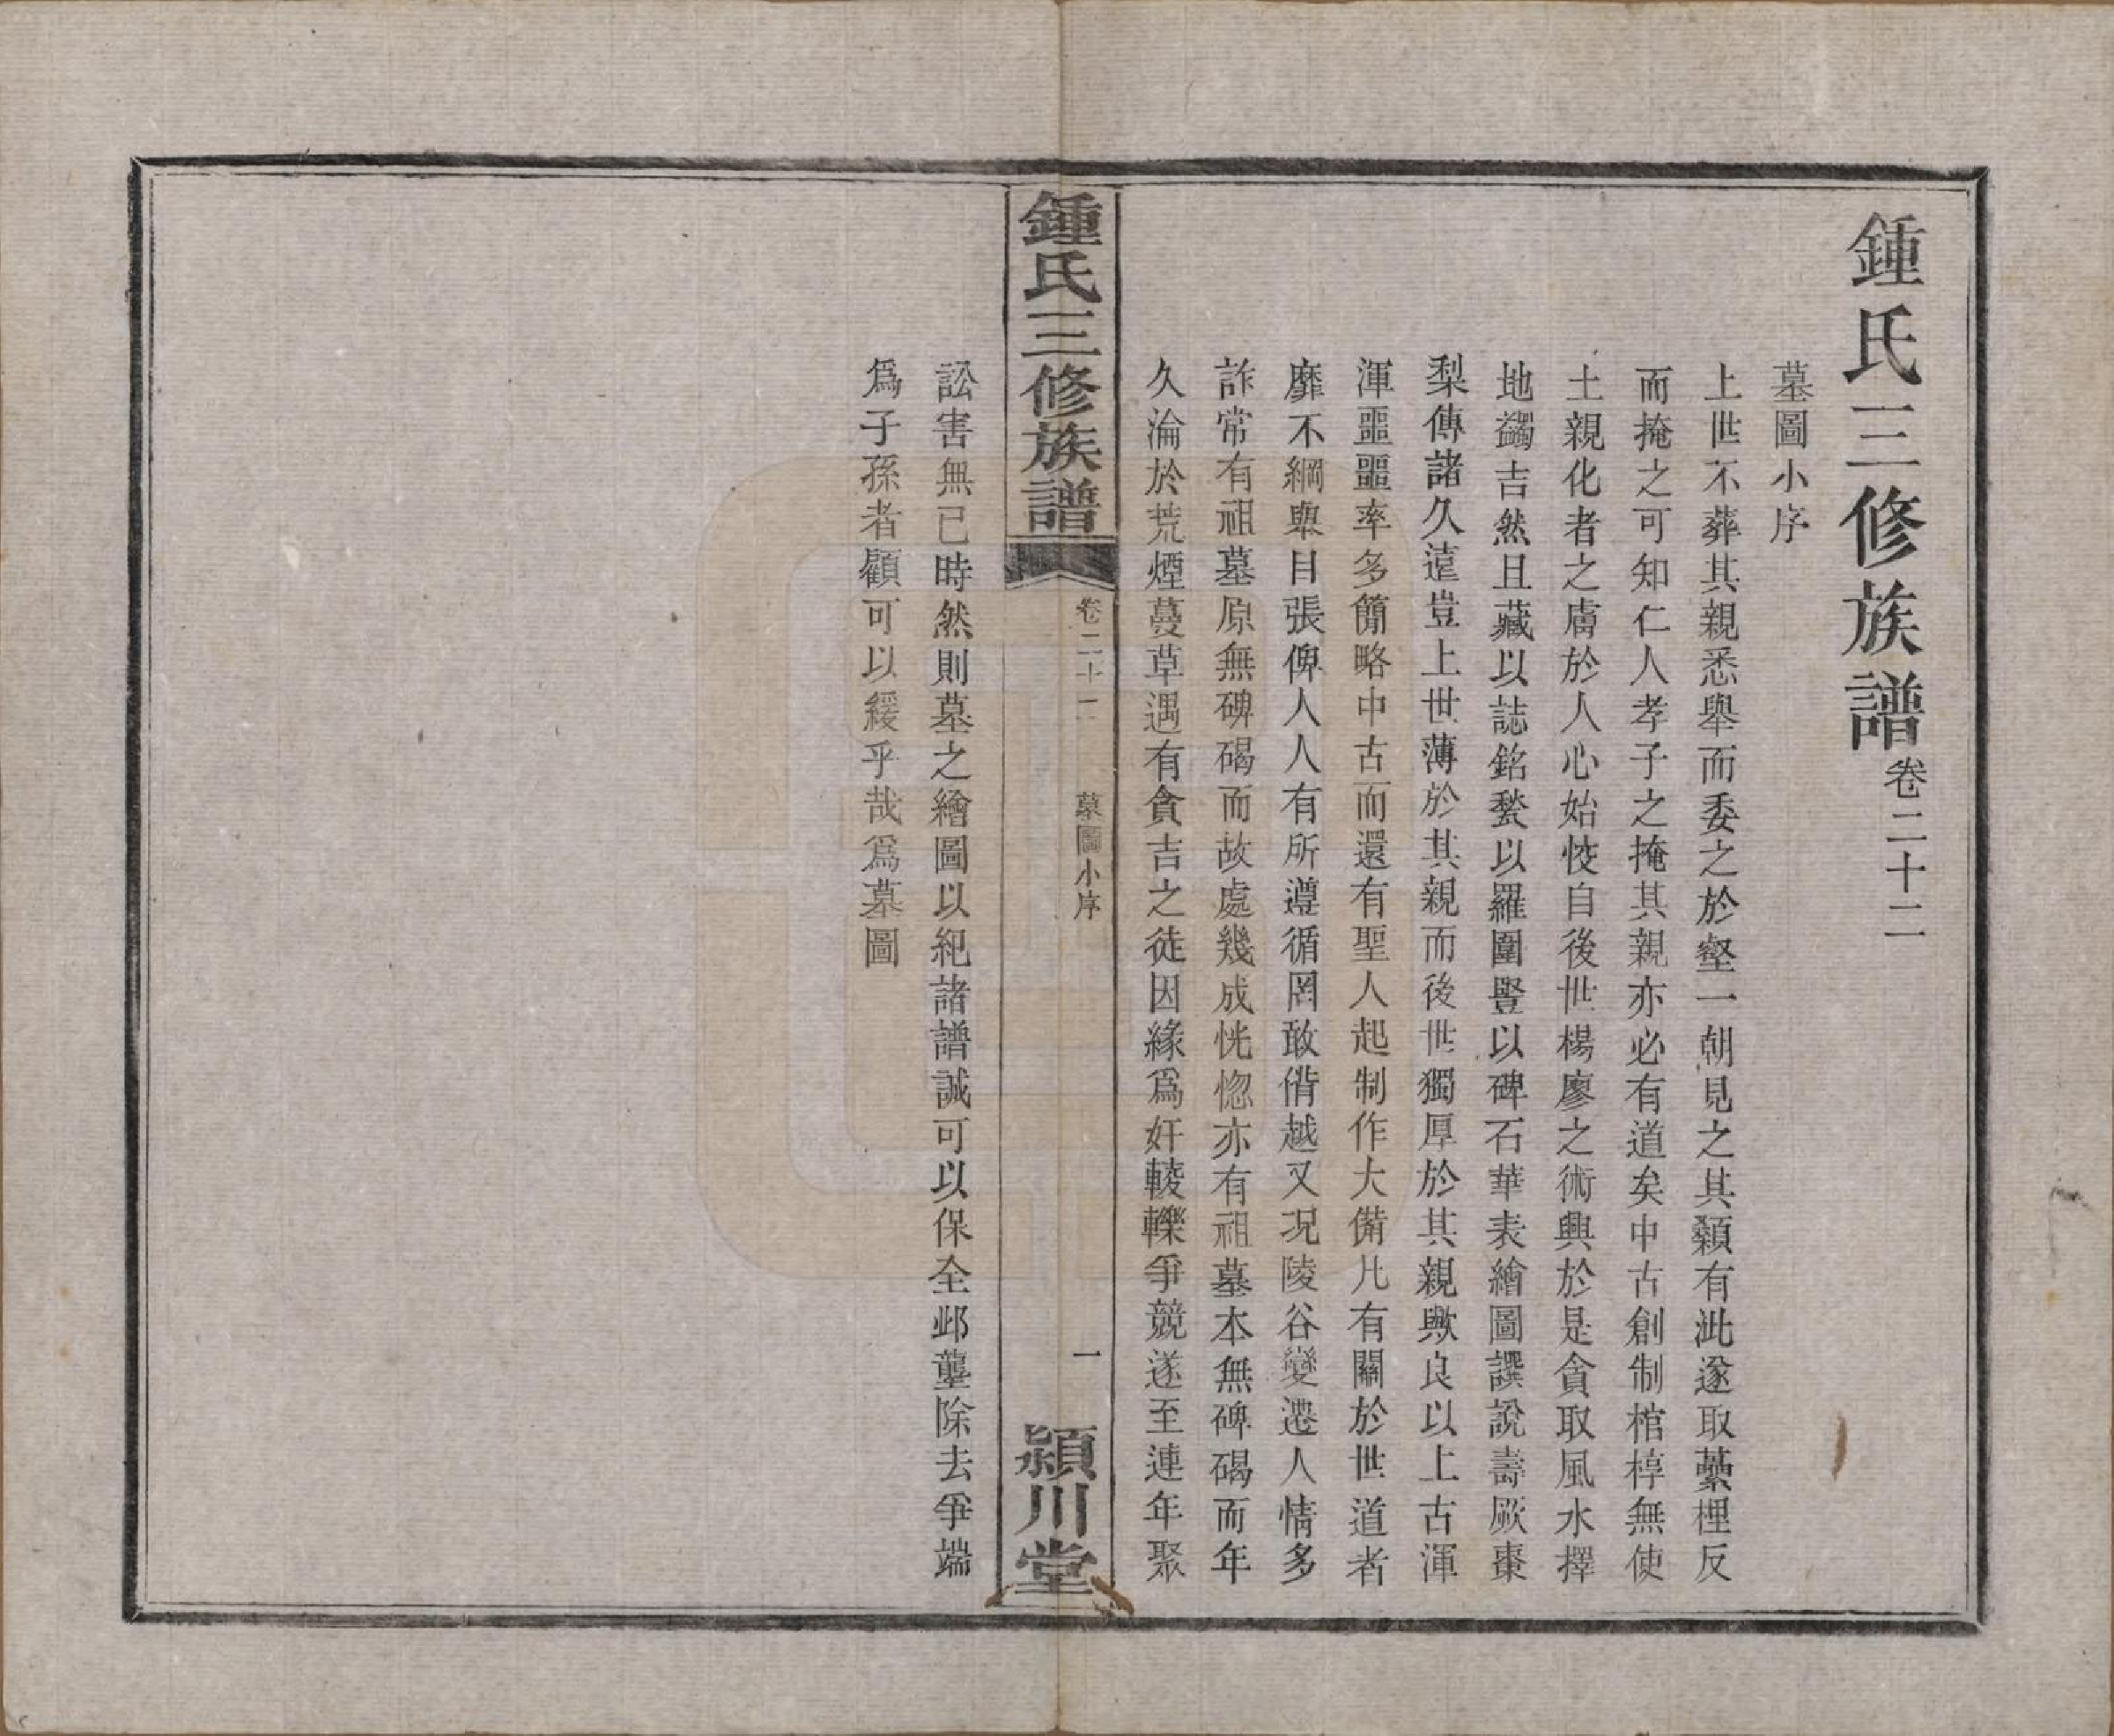 鍾氏三修族譜卷二十二
墓圖小序
上世不葬其親悉舉而委之於壑一朝見之其顙有泚遂取虆梩反
而掩之可知仁人孝子之掩其親亦必有道矣中古創制棺槨無使
土親化者之膚於人心始恔自後世楊廖之術興於是貪取風水擇
地蠲吉然且藏以誌銘甃以羅圍豎以碑石華表繪圖譔說壽厥棗
梨傳諸久遠豈上世薄於其親而後世獨厚於其親歟良以上古渾
渾噩噩率多簡略中古而還有聖人起制作大備凡有關於世道者
靡不綱舉目張俾人人有所遵循罔敢偝越又况陵谷變遷人情多
詐常有祖墓原無碑碣而故處幾成恍惚亦有祖墓本無碑碣而年
久淪於荒煙蔓草遇有貪吉之徒因緣爲奸輘轢爭競遂至連年聚
鍾氏三修族譜
卷二十二
墓圖小序
一
潁川堂
訟害無已時然則墓之繪圖以紀諸譜誠可以保全邱壟除去爭端
爲子孫者顧可以緩乎哉爲墓圖